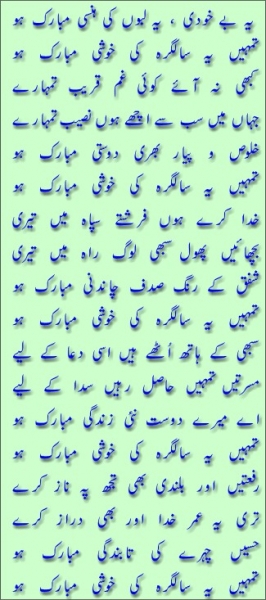 یہ بے خودی ، یہ لبوں کی ہنسی مبارک ہو
تمہیں یہ سالگرہ کی خوشی مبارک ہو
کبھی نہ آئے کوئی غم قریب تمہارے
جہاں میں سب سے اچھے ہوں نصیب تمہارے
خلوص و پیار بھری دوستی مبارک ہو
تمہیں یہ سالگرہ کی خوشی مبارک ہو
خدا کرے ہوں فرشتے سپاہ میں تیری
بچھائیں پھول سبھی لوگ راہ میں تیری
شفق کے رنگ صدف چاندنی مبارک ہو
تمہیں یہ سالگرہ کی خوشی مبارک ہو
سبھی کے ہاتھ اُٹھے ہیں اسی دعا کے لیے
مسرتیں تمہیں حاصل رہیں سدا کے لیے
اے میرے دوست نئی زندگی مبارک ہو
تمہیں یہ سالگرہ کی خوشی مبارک ہو
رفعتیں اور بلندی بھی تجھ پہ ناز کرے
تری یہ عمر خدا اور بھی دراز کرے
حسیں چہرے کی تابندگی مبارک ہو
تمہیں یہ سالگرہ کی خوشی مبارک ہو